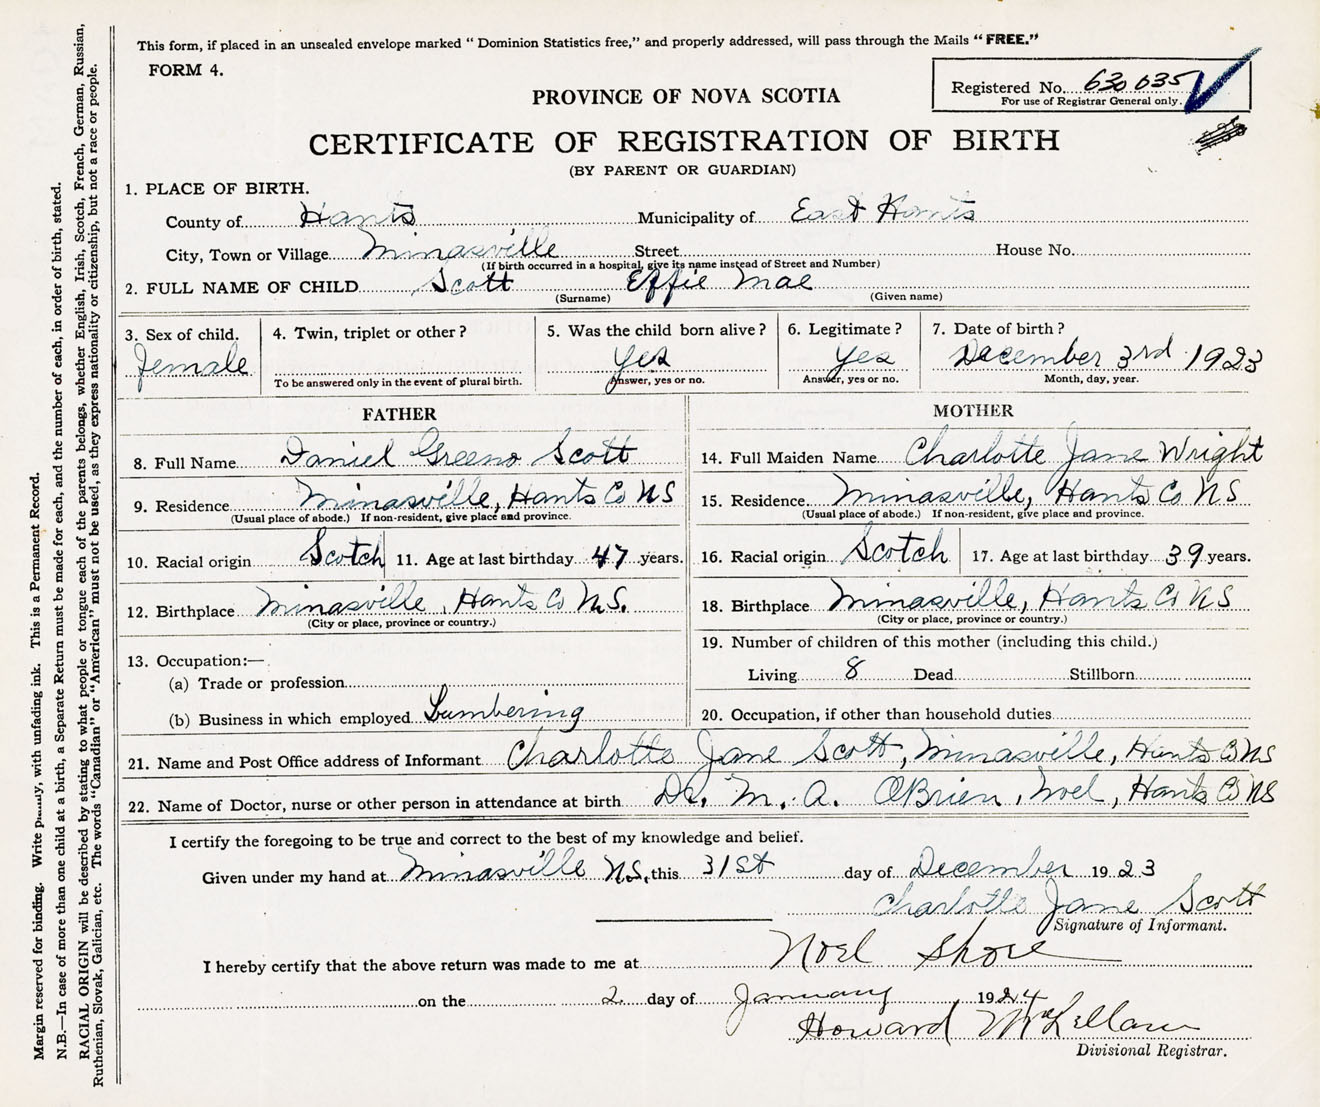 This form, if placed in an unsealed envelope marked " Dominion Statistics free," and properly addressed, will pass through the Mails " FREE."
FORM 4.
Registered No. 630 635
For use of Registrar General only.
PROVINCE OF NOVA SCOTIA
CERTIFICATE OF REGISTRATION OF BIRTH
(BY PARENT OR GUARDIAN)
1. PLACE OF BIRTH.
County of Hants Municipality of East Hants
City, Town or Village Minasville Street House No.
(If birth occurred in a hospital, give its name instead of Street and Number)
2. FULL NAME OF CHILD Scott Effie Mae
(Surname) (Given name)
3. Sex of child. 4. Twin, triplet or other? 5. Was the child born alive? 6. Legitimate? 7. Date of birth?
Female Yes Yes December 3rd 1923
To be answered only in the event of plural birth. Answer, yes or no. Answer, yes or no. Month, day, year.
FATHER
8. Full Name Daniel Greeno Scott
9. Residence Minasville, Hants Co NS
(Usual place of abode.) If non-resident, give place and province.
10. Racial origin Scotch 11. Age at last birthday 47 years.
12. Birthplace Minasville, Hants Co N.S.
(City or place, province or country.)
13. Occupation:—
(a) Trade or profession
(b) Business in which employed Lumbering
MOTHER
14. Full Maiden Name Charlotte Jane Wright
15. Residence Minasville, Hants Co NS
(Usual place of abode.) If non-resident, give place and province.
16. Racial origin Scotch 17. Age at last birthday 39 years.
18. Birthplace Minasville, Hants Co NS
(City or place, province or country.)
19. Number of children of this mother (including this child.)
Living 8 Dead Stillborn
20. Occupation, if other than household duties
21. Name and Post Office address of Informant Charlotte Jane Scott, Minasville, Hants Co NS
22. Name of Doctor, nurse or other person in attendance at birth Dr. M. A. O'Brien, Noel, Hants Co NS
I certify the foregoing to be true and correct to the best of my knowledge and belief.
Given under my hand at Minasville N.S. this 31st day of December 1923
Charlotte Jane Scott
Signature of Informant.
I hereby certify that the above return was made to me at Noel Shore
on the 2 day of January 1924
Howard McLellan
Divisional Registrar.
Margin reserved for binding. Write plainly, with unfading ink. This is a Permanent Record.
N.B.—In case of more than one child at a birth, a Separate Return must be made for each, and the number of each, in order of birth, stated.
RACIAL ORIGIN will be described by stating to what people or tongue each of the parents belongs, whether English, Irish, Scotch, French, German, Russian,
Ruthenian, Slovak, Galician, etc. The words "Canadian" or "American" must not be used, as they express nationality or citizenship, but not a race or people.